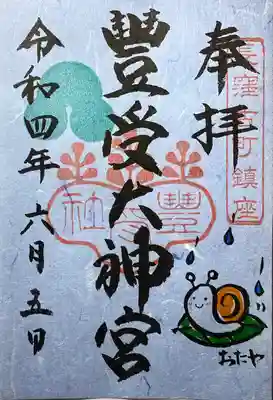 奉拝
長窪古町鎮座
豐受大神宮
豐受社
令和四年六月五日
おたや